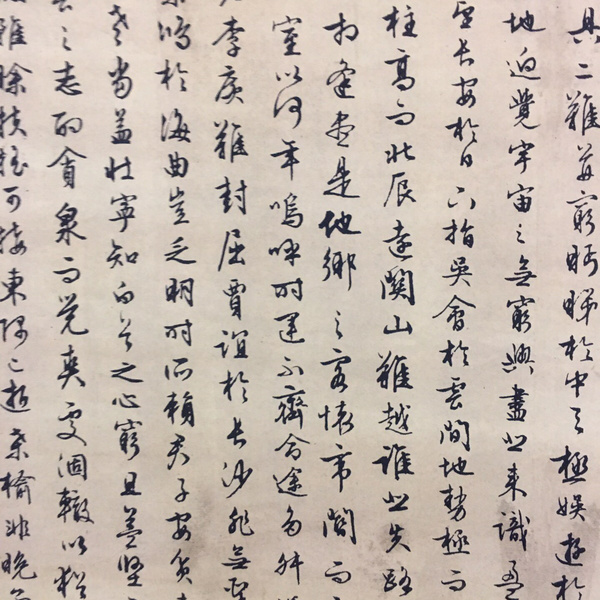 具二難並窮眄睇於中天極娛遊於
地迥覺宇宙之無窮興盡悲來識盈
望長安於日下指吳會於雲間地勢極而
柱高而北辰遠關山難越誰悲失路
相逢盡是他鄉之客懷帝閽而不
室以何年嗚呼時運不齊命途多舛
李廣難封屈賈誼於長沙非無聖
鴻於海曲豈乏明時所賴君子安貧
老當益壯寧知白首之心窮且益堅
之志酌貪泉而覺爽處涸轍以猶
雖賒扶搖可接東隅已逝桑榆非晚